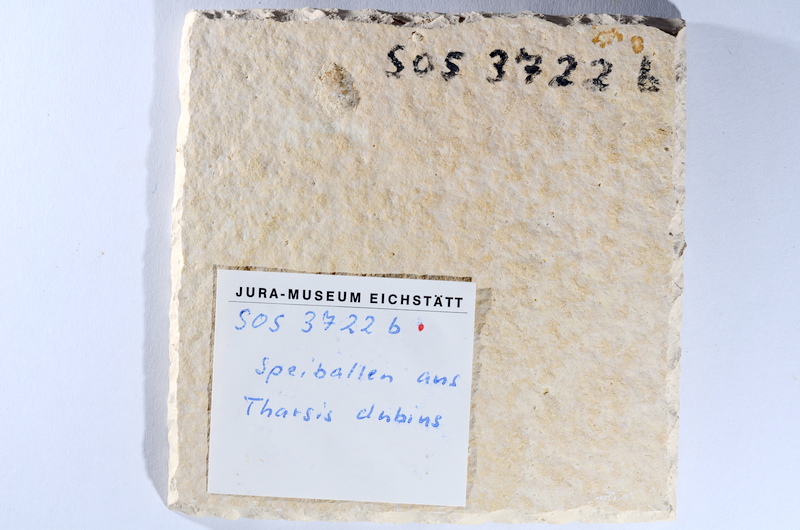 SOS 3722 b
JURA-MUSEUM EICHSTÄTT
SOS 3722 b
Speiballen aus
Tharsis dubius